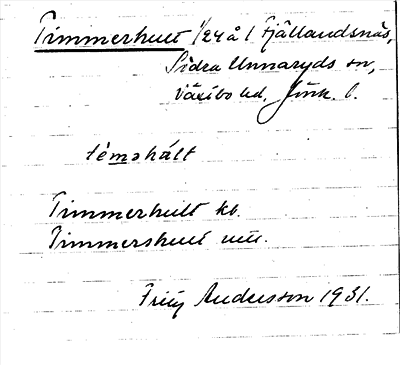 Timmerhult 1/24 å 1 Fjällandsnäs,
Södra Unnaryds sn,
Västbo hd, Jönk. l.
témǝhált
Timmerhult kb.
Timmershult
Fritz Andersson 1931.